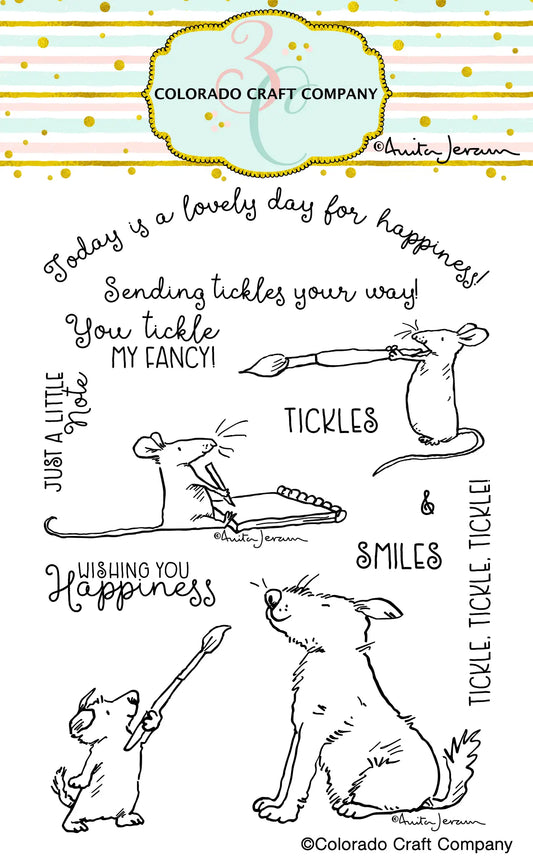 3C
COLORADO CRAFT COMPANY
©Anita Jeram
Today is a lovely day for happiness!
Sending tickles your way!
You tickle
MY FANCY!
JUST A LITTLE
Note
TICKLES
&
SMILES
©Anita Jeram
WISHING YOU
Happiness
TICKLE, TICKLE, TICKLE!
©Anita Jeram
©Colorado Craft Company